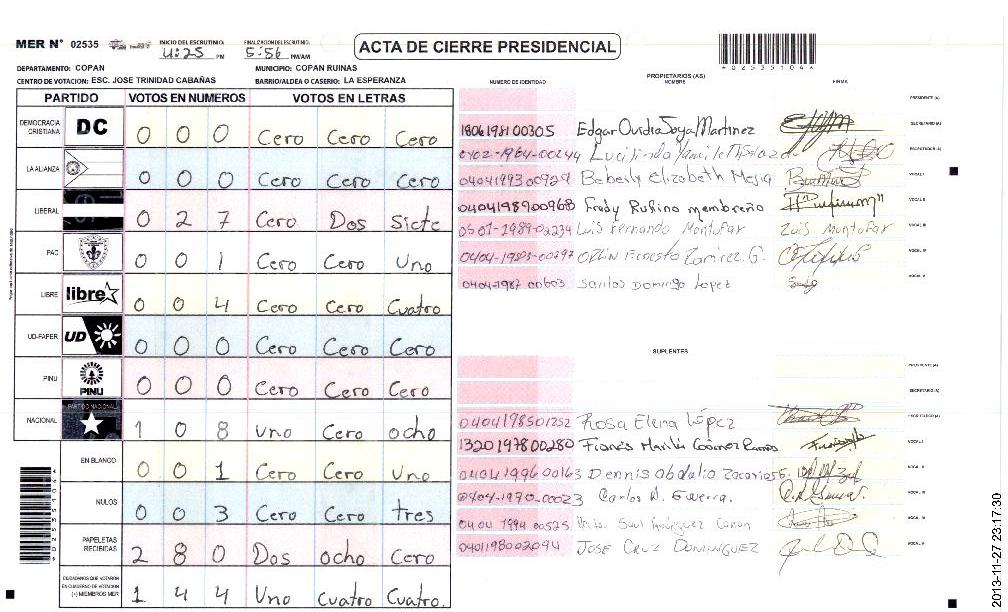 MER N° 02535 INICIO DEL ESCRUTINIO: 4:25 PM FINALIZACION ESCRUTINIO: 5:56 PM/AM ACTA DE CIERRE PRESIDENCIAL
DEPARTAMENTO: COPAN MUNICIPIO: COPAN RUINAS
CENTRO DE VOTACION: ESC. JOSE TRINIDAD CABAÑAS BARRIO/ALDEA O CASERIO: LA ESPERANZA
PARTIDO VOTOS EN NUMEROS VOTOS EN LETRAS
DEMOCRACIA CRISTIANA DC 0 0 0 Cero Cero Cero
LA ALIANZA 0 0 0 Cero Cero Cero
LIBERAL 0 2 7 Cero Dos siete
PAC 0 0 1 Cero Cero Uno
LIBRE libre 0 0 4 Cero Cero Cuatro
UD-FAPER UD 0 0 0 Cero Cero Cero
PINU PINU 0 0 0 Cero Cero Cero
NACIONAL PARTIDO NACIONAL 1 0 8 Uno Cero ocho
EN BLANCO 0 0 1 Cero Cero Uno
NULOS 0 0 3 Cero Cero tres
PAPELETAS RECIBIDAS 2 8 0 Dos ocho Cero
CIUDADANOS QUE VOTARON EN CUADERNO DE VOTACION (+) MIEMBROS MER 1 4 4 Uno Cuatro Cuatro.
PROPIETARIOS (AS)
NUMERO DE IDENTIDAD NOMBRE FIRMA
PRESIDENTE (A)
1806198100305 Edgar Ovidio Martinez SECRETARIO (A)
0402-1964-00244 ESCRUTADOR (A)
0404199300929 Beberly Elizabeth Mejia VOCAL I
0404198900968 Fredy Rufino membreño VOCAL II
0501-1989-02234 Luis Fernando Montofar Luis Montofar VOCAL III
0404-1983-00297 Ernesto Ramirez. G. VOCAL IV
0404-1987 00603 Santos Domingo Lopez VOCAL V
SUPLENTES
PRESIDENTE (A)
SECRETARIO (A)
0404198501252 Rosa Elena López ESCRUTADOR (A)
1320197800280 Francis Marili Gómez Ramos VOCAL I
0404 1996 00163 Dennis Obdalio VOCAL II
0404-1970-00023 Carlos A. Guerra. VOCAL III
0404 1994 00525 Saul Rodriguez VOCAL IV
0401198002094 JOSE CRUZ DOMINGUEZ VOCAL V
*02535104*
2013-11-27 23:17:30